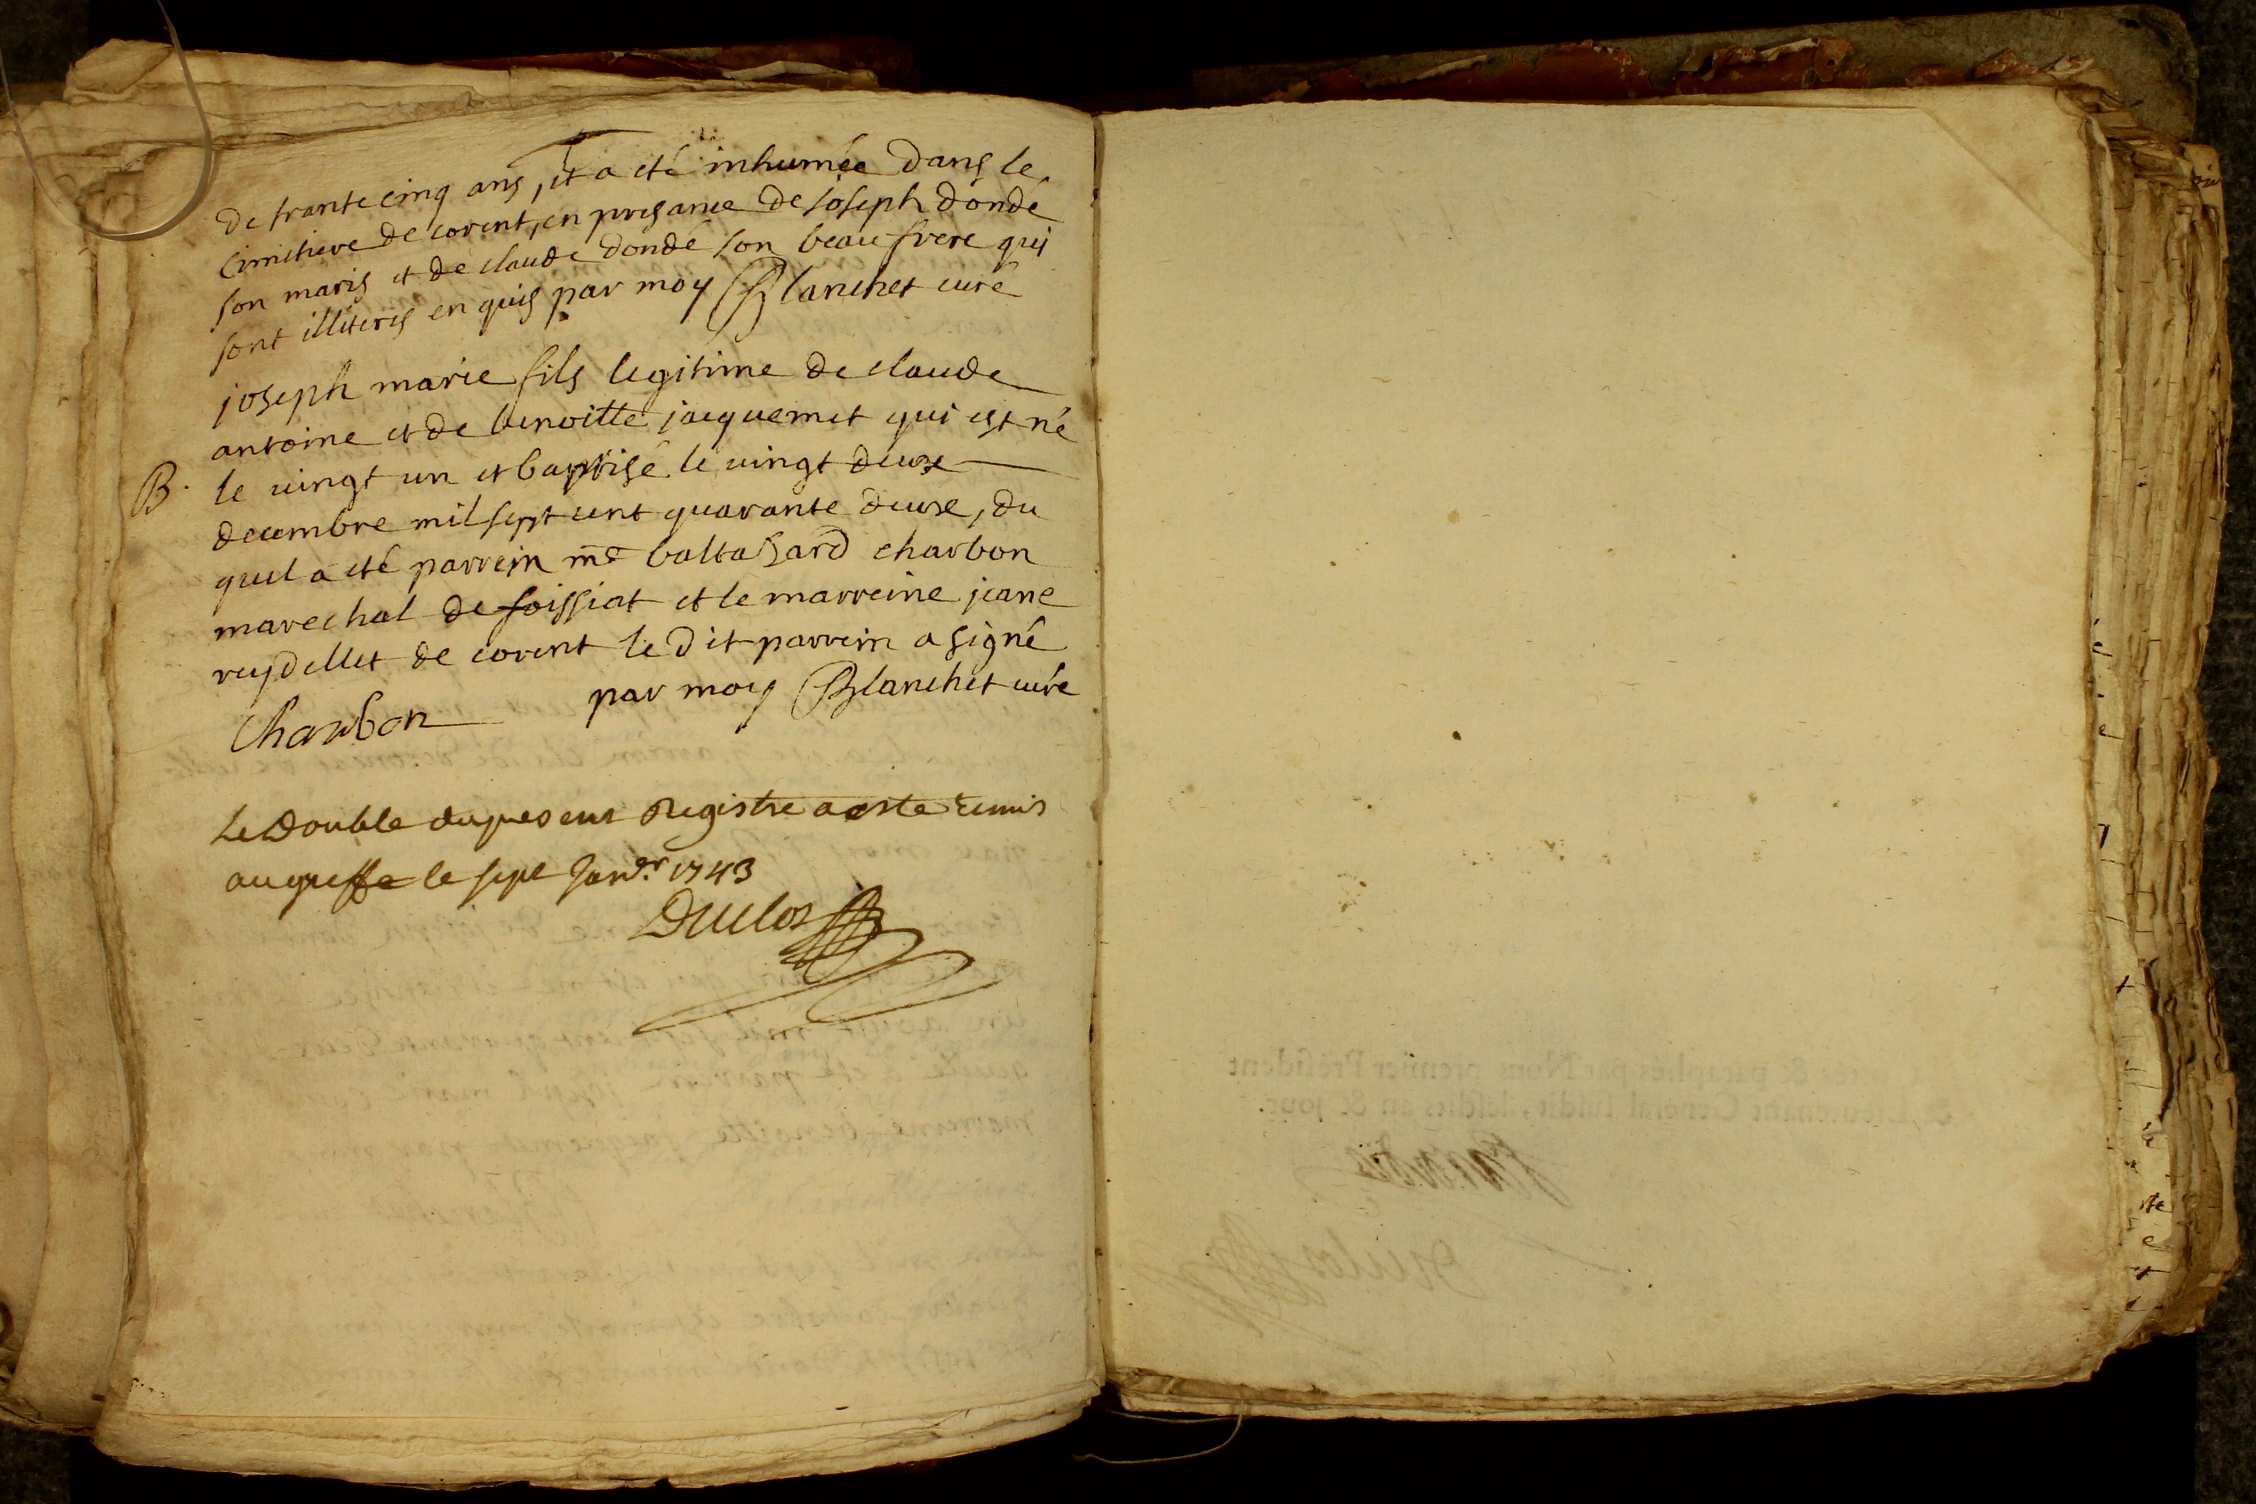 de trante cinq ans, et a eté inhumée dans le
cimetiere de corent, en presance de joseph dondé
son maris et de claude dondé son beau frere qui
sont illiteris en quis par moy Blanchet curé
joseph marie fils legitime de claude
antoine et de benoitte jacquemet qui est né
B. le vingt un et baptisé le vingt deuxe
decembre mil sept cent quarante deuxe, du
quel a eté parrein me baltasard charbon
marechal de foissiat et le marreine jeane
reydellet de corent le dit parrein a signé
Charbon par moy Blanchet curé
Le Double du present Registre a este remis
au greffe le sept Janer. 1743
Duclos
& paraphés par Nous premier Président
& Lieutenant Général susdit, lesdits an & jour.
Duclos